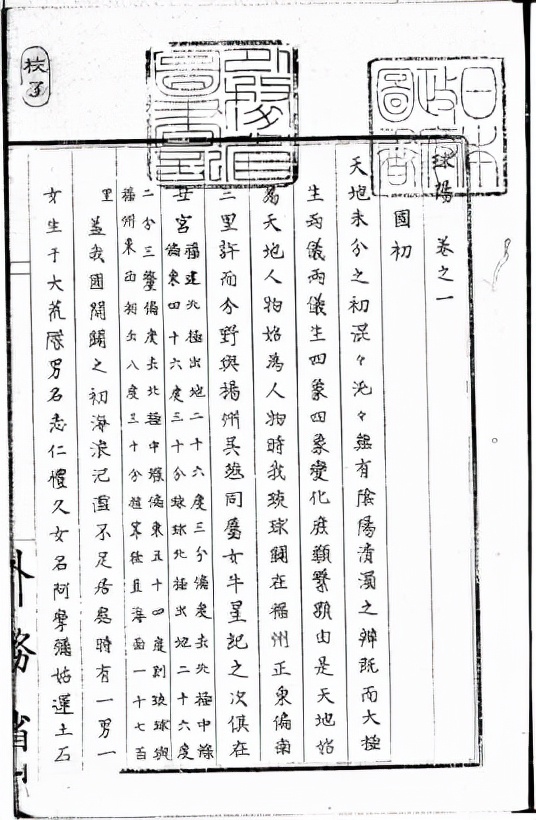 球陽 卷之一
國初
天地未分之初混々沌々無有陰陽清濁之辨既而大極
生両儀両儀生四象四象變化庶類繁顆由是天地始
為天地人物始為人物時我琉球闢在福州正東偏南
三里許而分野與揚州吳越同屬女牛星紀之次俱在
丑宮
福建北極出地二十六度三分偏度去北極中線
偏東四十六度三十分琉球北極出地二十六度
二分三釐偏度去北極中線偏東五十四度則琉球與
福州東西相去八度三十分
徑直海面一千七百
里
蓋我國開闢之初海浪氾濫不足居處時有一男一
女生于大荒際男名志仁禮久女名阿摩彌姑運土石
外務省
校了
日本政府圖書